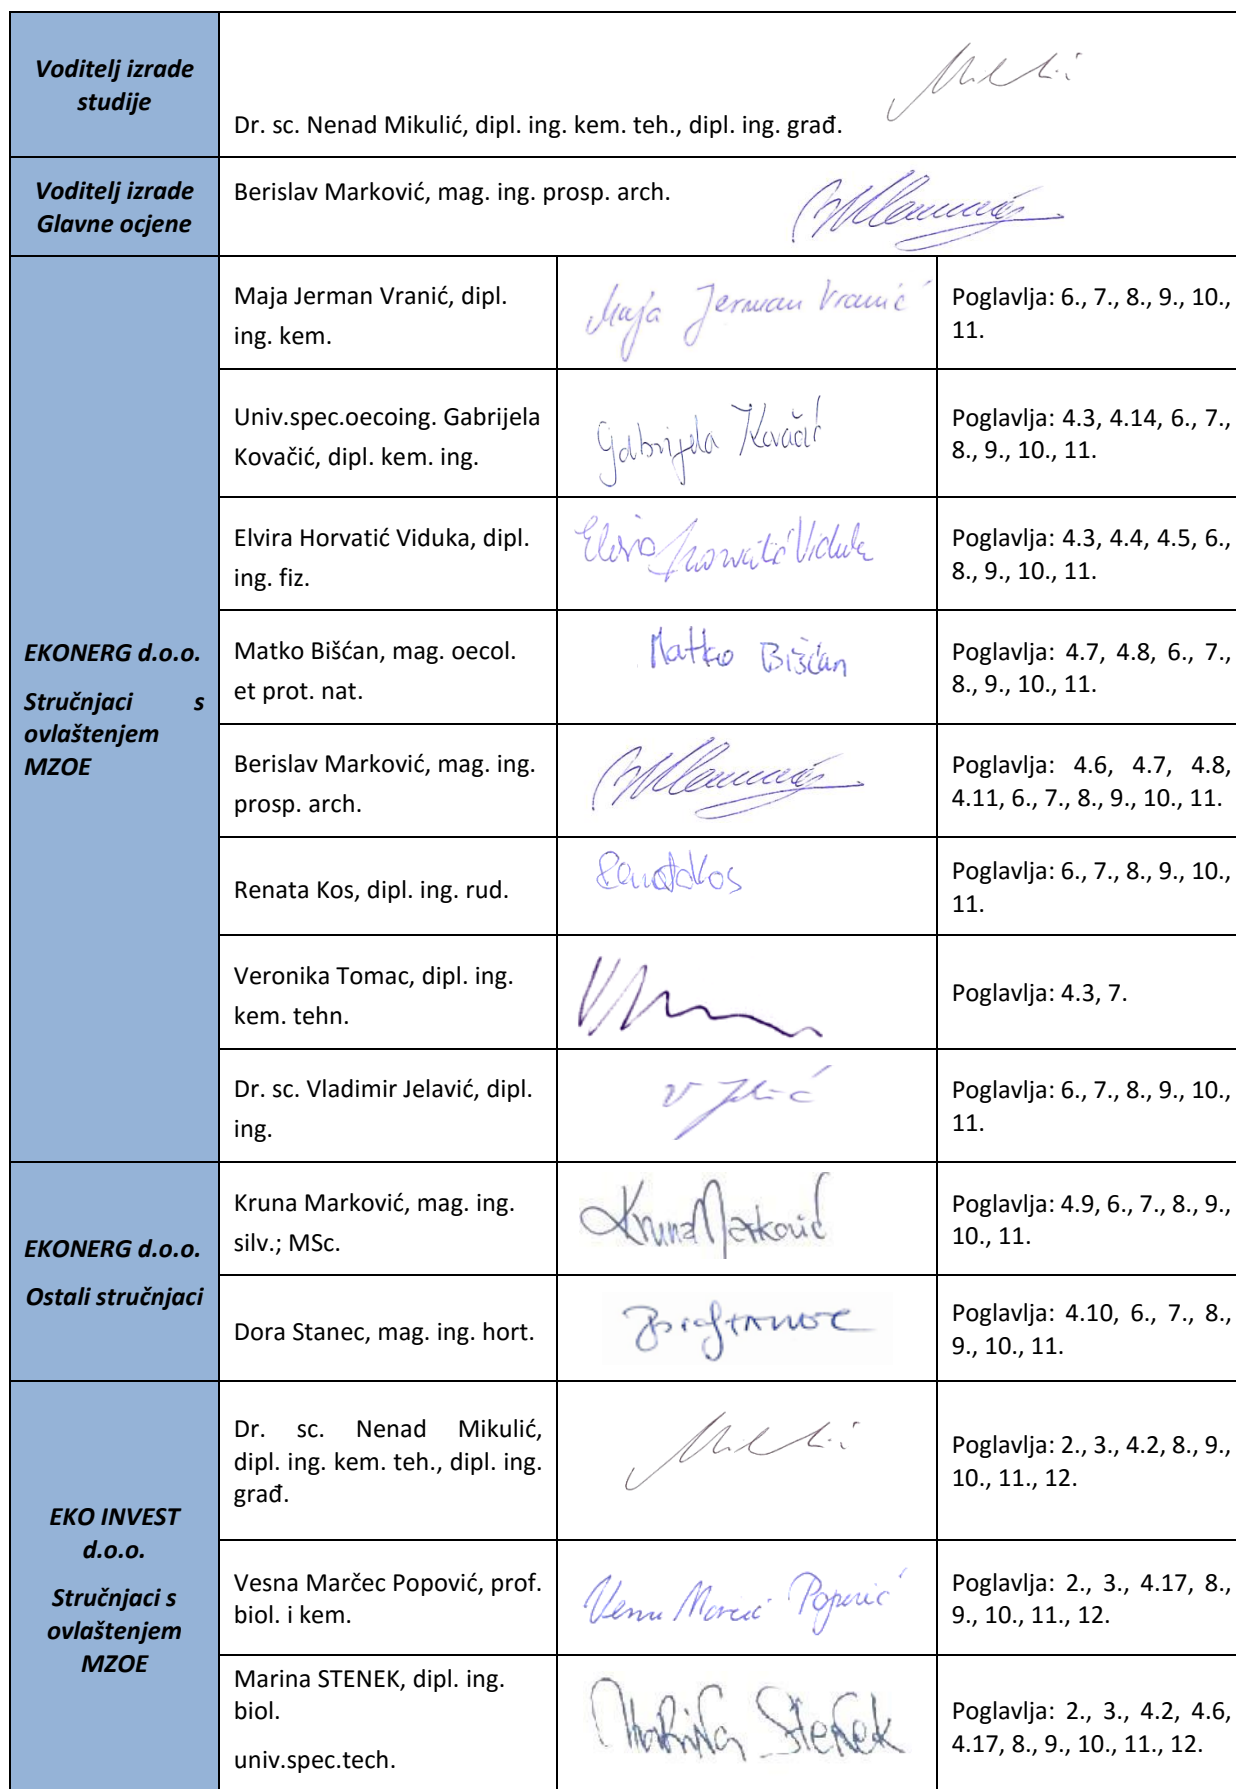 Voditelj izrade
studije
Dr. sc. Nenad Mikulić, dipl. ing. kem. teh., dipl. ing. građ.
Voditelj izrade
Glavne ocjene
Berislav Marković, mag. ing. prosp. arch.
EKONERG d.o.o.
Stručnjaci s
ovlaštenjem
MZOE
Maja Jerman Vranić, dipl.
ing. kem.
Maja Jerman Vranić
Poglavlja: 6., 7., 8., 9., 10.,
11.
Univ.spec.oecoing. Gabrijela
Kovačić, dipl. kem. ing.
Gabrijela Kovačić
Poglavlja: 4.3, 4.14, 6., 7.,
8., 9., 10., 11.
Elvira Horvatić Viduka, dipl.
ing. fiz.
Elvira Horvatić Viduka
Poglavlja: 4.3, 4.4, 4.5, 6.,
8., 9., 10., 11.
Matko Bišćan, mag. oecol.
et prot. nat.
Matko Bišćan
Poglavlja: 4.7, 4.8, 6., 7.,
8., 9., 10., 11.
Berislav Marković, mag. ing.
prosp. arch.
Poglavlja: 4.6, 4.7, 4.8,
4.11, 6., 7., 8., 9., 10., 11.
Renata Kos, dipl. ing. rud.
Renata Kos
Poglavlja: 6., 7., 8., 9., 10.,
11.
Veronika Tomac, dipl. ing.
kem. tehn.
Poglavlja: 4.3, 7.
Dr. sc. Vladimir Jelavić, dipl.
ing.
Poglavlja: 6., 7., 8., 9., 10.,
11.
EKONERG d.o.o.
Ostali stručnjaci
Kruna Marković, mag. ing.
silv.; MSc.
Kruna Marković
Poglavlja: 4.9, 6., 7., 8., 9.,
10., 11.
Dora Stanec, mag. ing. hort.
Poglavlja: 4.10, 6., 7., 8.,
9., 10., 11.
EKO INVEST
d.o.o.
Stručnjaci s
ovlaštenjem
MZOE
Dr. sc. Nenad Mikulić,
dipl. ing. kem. teh., dipl. ing.
građ.
Poglavlja: 2., 3., 4.2, 8., 9.,
10., 11., 12.
Vesna Marčec Popović, prof.
biol. i kem.
Vesna Marčec Popović
Poglavlja: 2., 3., 4.17, 8.,
9., 10., 11., 12.
Marina STENEK, dipl. ing.
biol.
univ.spec.tech.
Marina Stenek
Poglavlja: 2., 3., 4.2, 4.6,
4.17, 8., 9., 10., 11., 12.